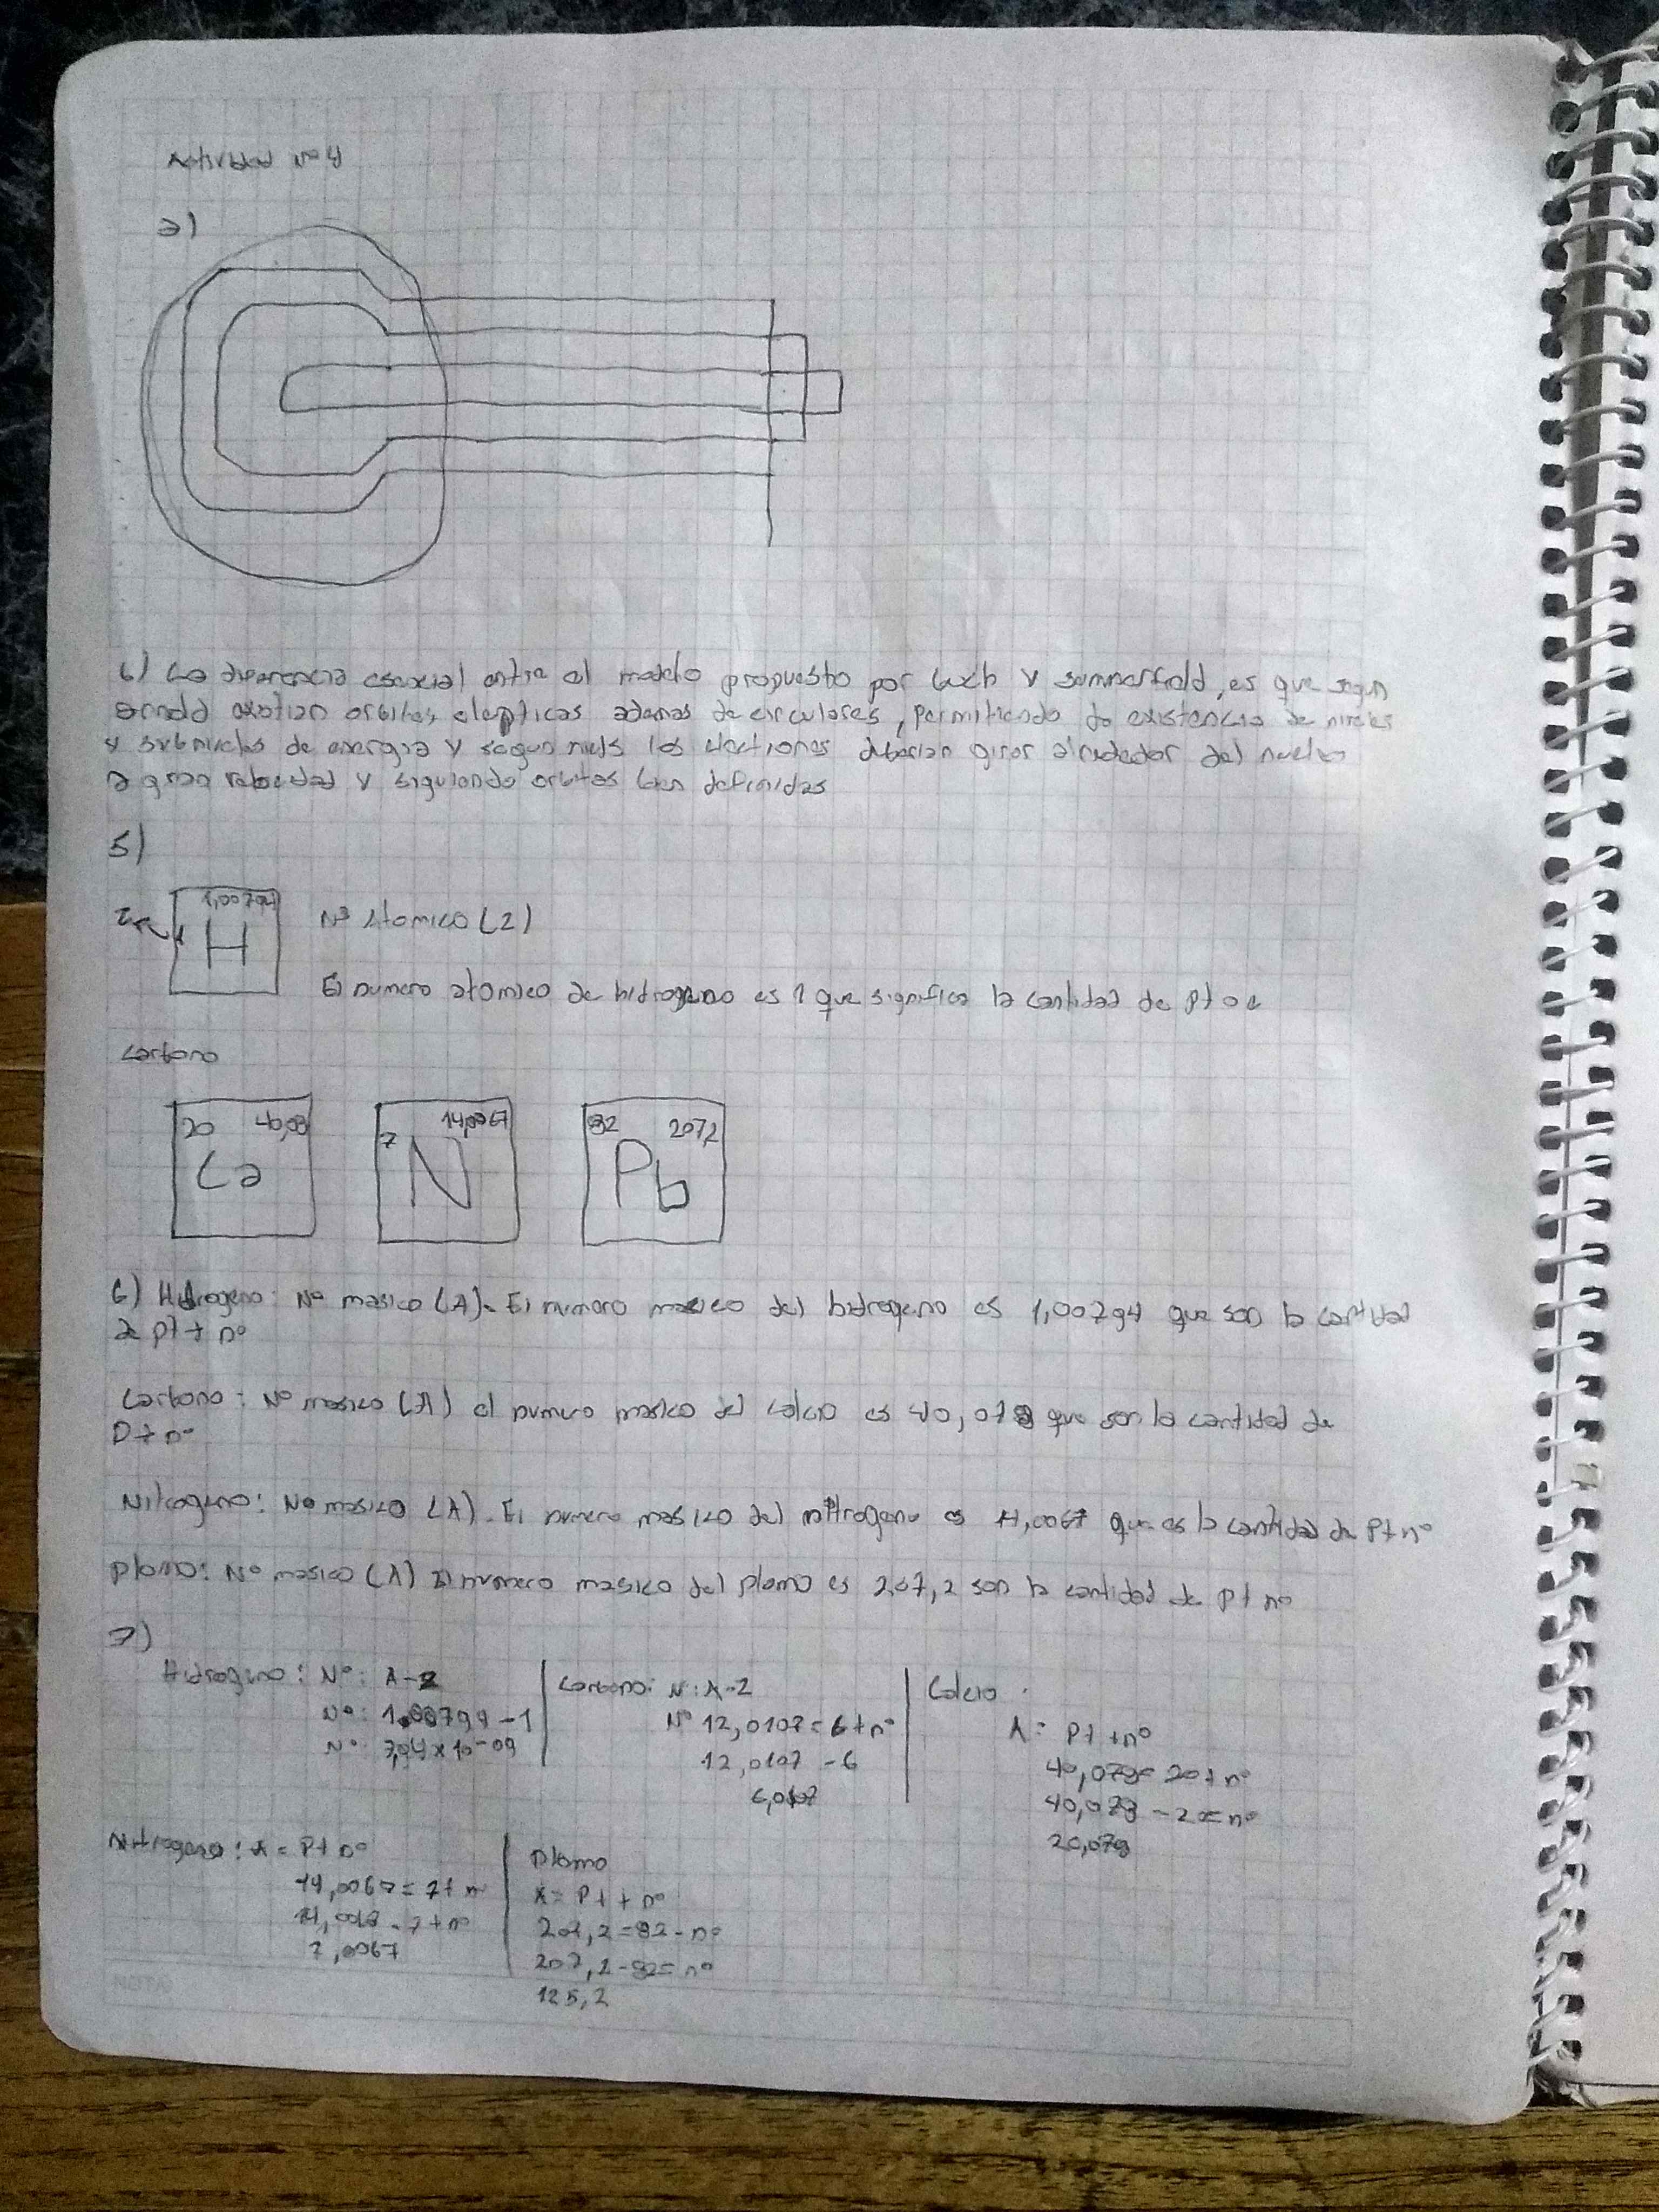 Actividad Nº 4
a)
b) La diferencia esencial entre el modelo propuesto por y sommerfeld, es que segun
arnold existian orbitas elepticas ademas de circulares, permitiendo la existencia de niveles
y subniveles de energia y segun niels los electrones deberian girar alrededor del nucleo
a gran velocidad y siguiendo orbitas bien definidas
5)
1,00794
Z 1 H Nº Atomico (Z)
El numero atomico de hidrogeno es 1 que significa la cantidad de p+ o e
Carbono
20 40,08 7 14,0067 82 207,2
Ca N Pb
6) Hidrogeno: Nº masico (A)- El numero masico del hidrogeno es 1,00794 que son la cantidad
de p+ + nº
Carbono: Nº masico (A) el numero masico del calcio es 40,078 que son la cantidad de
p+ nº
Nitrogeno: Nº masico (A). El numero masico del nitrogeno es 14,0067 que es la cantidad de p+ nº
plomo: Nº masico (A) El numero masico del plomo es 207,2 son la cantidad de p+ nº
7)
Hidrogeno: Nº: A-Z
Nº: 1,00794 -1
Nº: 7,94x10-09
Carbono: N: A-Z
Nº 12,0107 = 6+nº
12,0107 -6
6,0107
Calcio
A= p+ +nº
40,078= 20+nº
40,078 -20=nº
20,078
Nitrogeno: A = p+ nº
14,0067= 7+ n
14,0067 - 7+nº
7,0067
Plomo
A= p+ + nº
207,2 =82 - nº
207,2-82= nº
125,2
NOTA